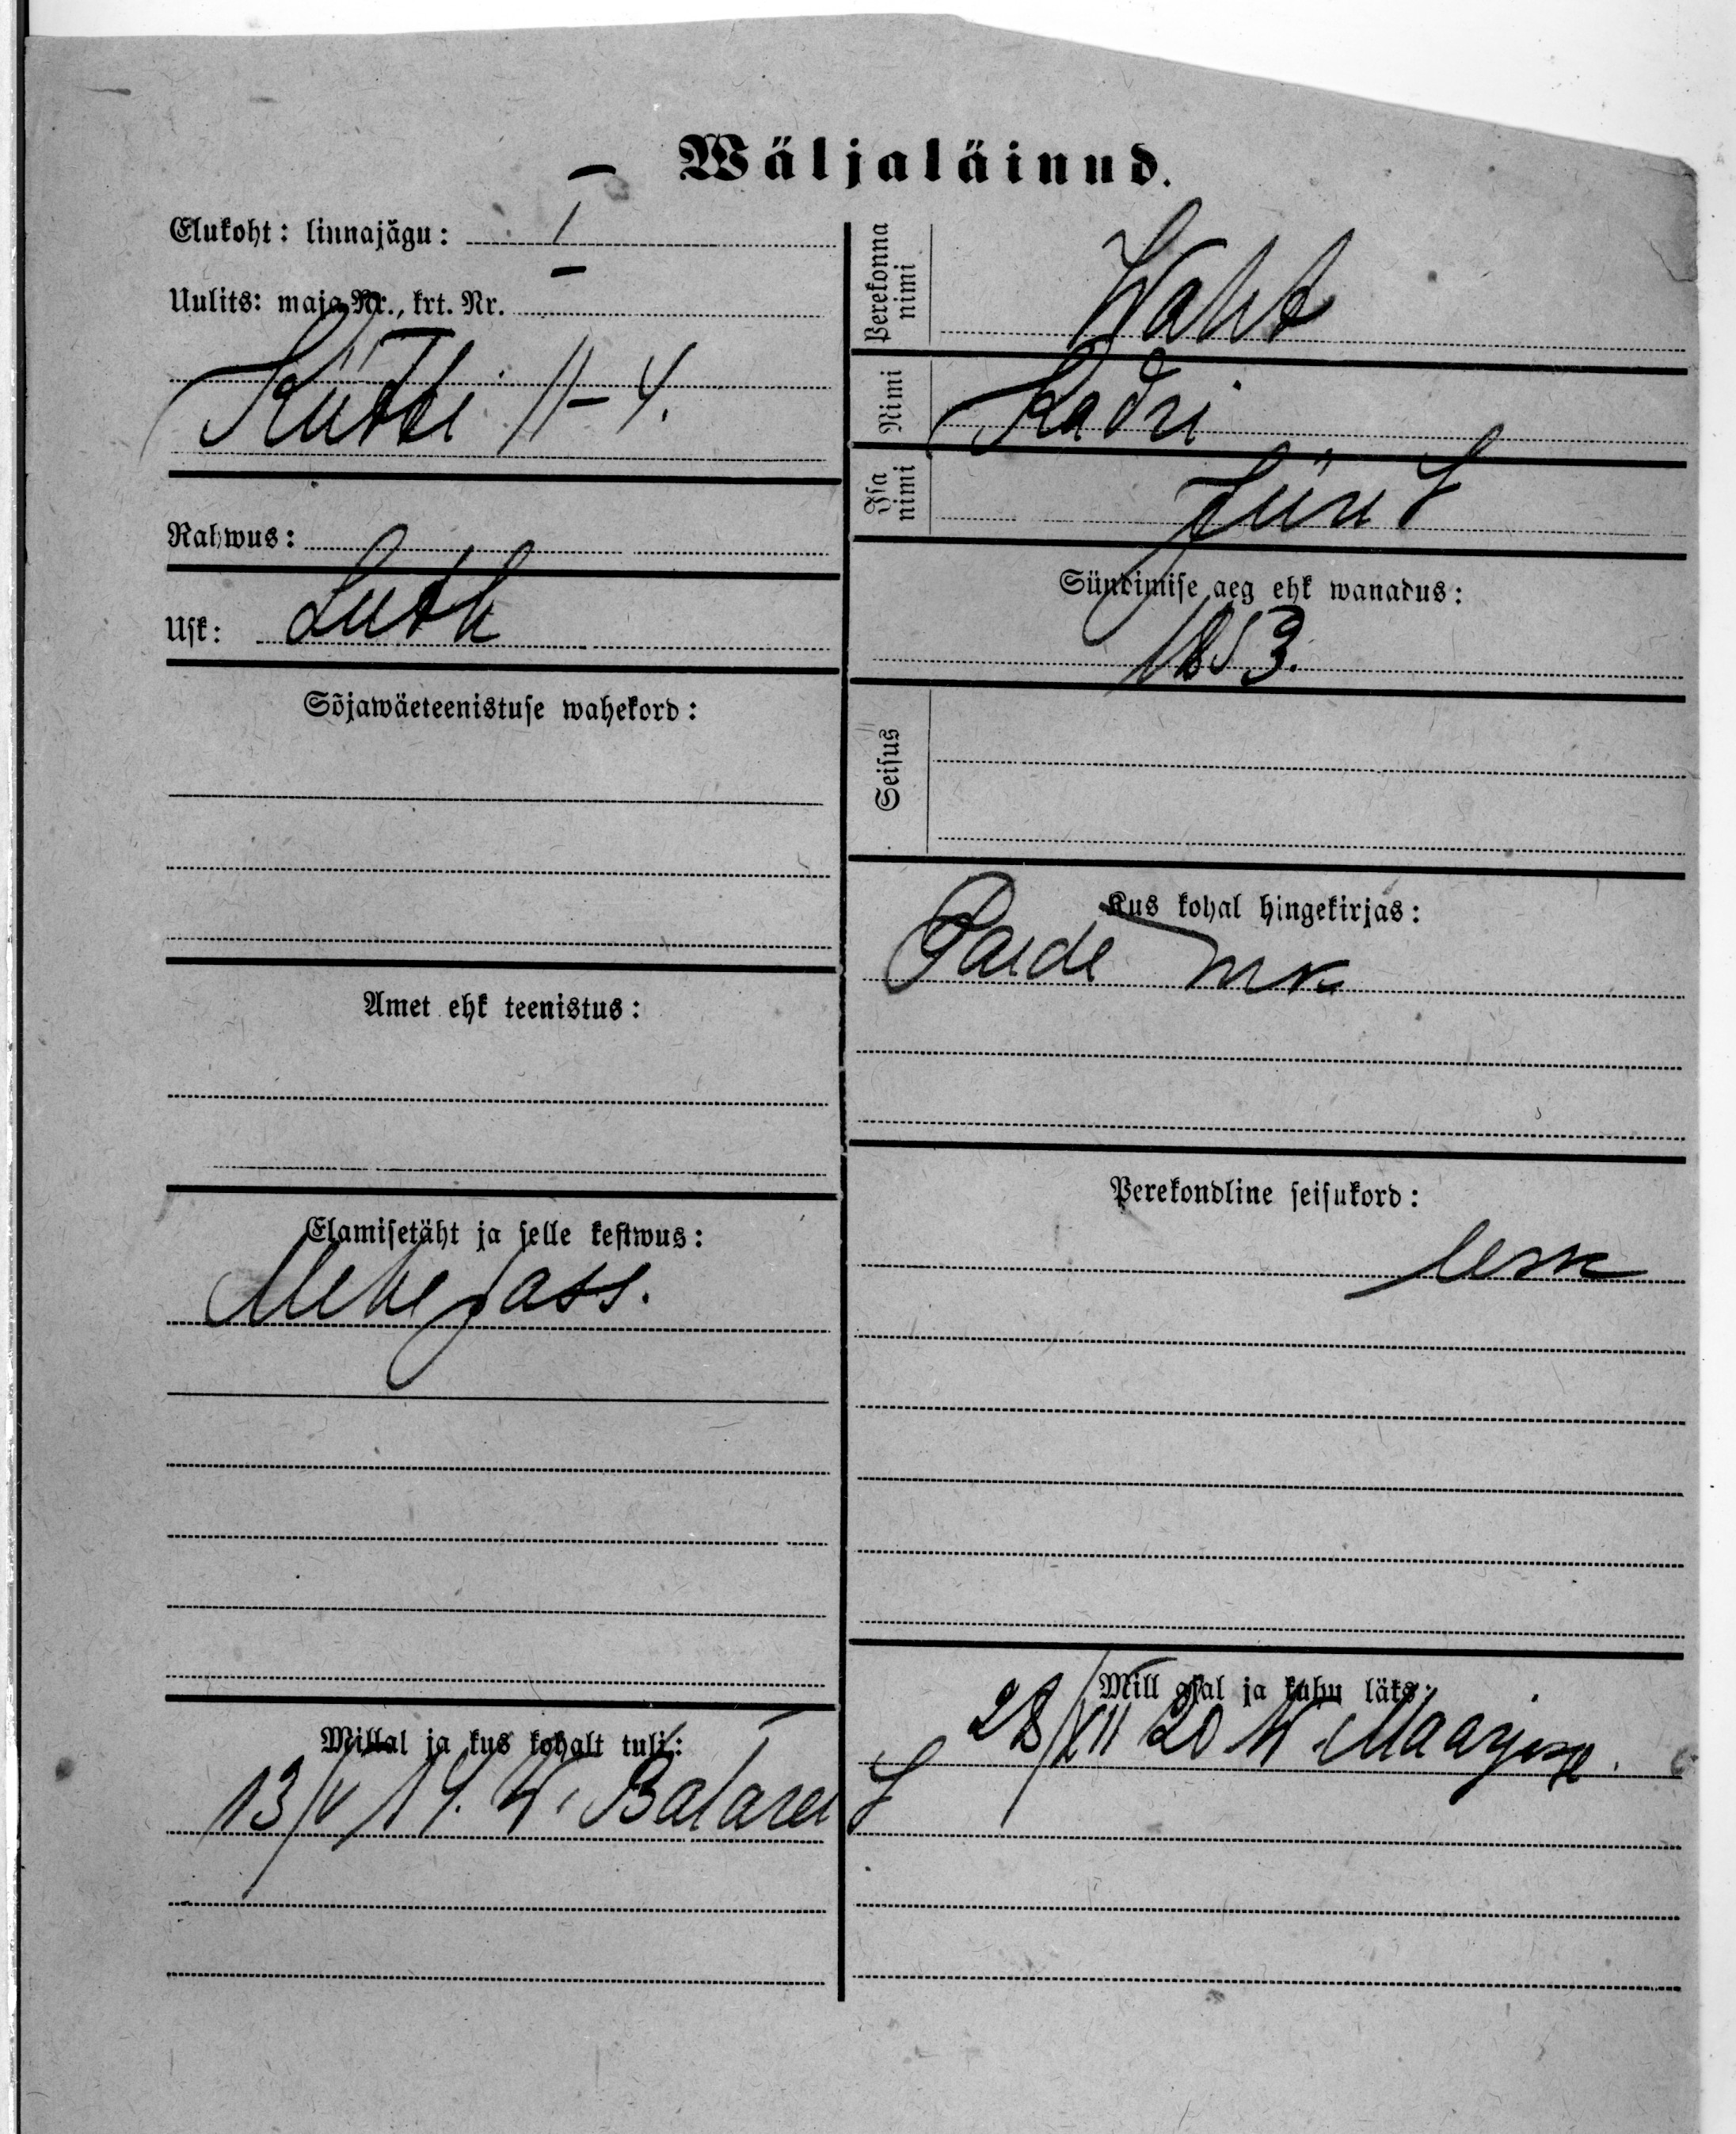 Wäljaläinud.
Elukoht: linnajägu: I
Uulits: maja Nr., krt. Nr.
Kütti 11-4.
Rahwus:
Usk: Luth
Sõjawäeteenistuse wahekord:
Amet ehk teenistus:
Elamisetäht ja selle kestwus:
Mehe pass.
Millal ja kus kohalt tuli:
13/V 19. W. Batarei
Perekonna nimi
Waht
Nimi
Kadri
Isa nimi
Jüri t
Sündimise aeg ehk wanadus:
1853.
Seisus
Kus kohal hingekirjas:
Paide mk
Perekondline seisukord:
lesk
Mill ajal ja kuhu läks:
28/XII 20 W.